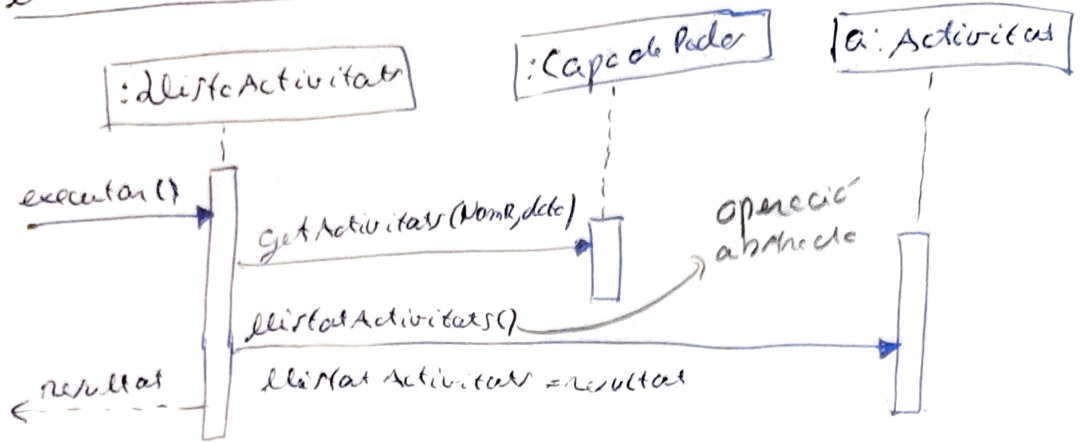 :LlistaActivitats
:Capa de Dades
a: Activitat
executar()
getActivitats(NomR, data)
operació
abstracta
llistatActivitats()
llistatActivitats = resultat
resultat